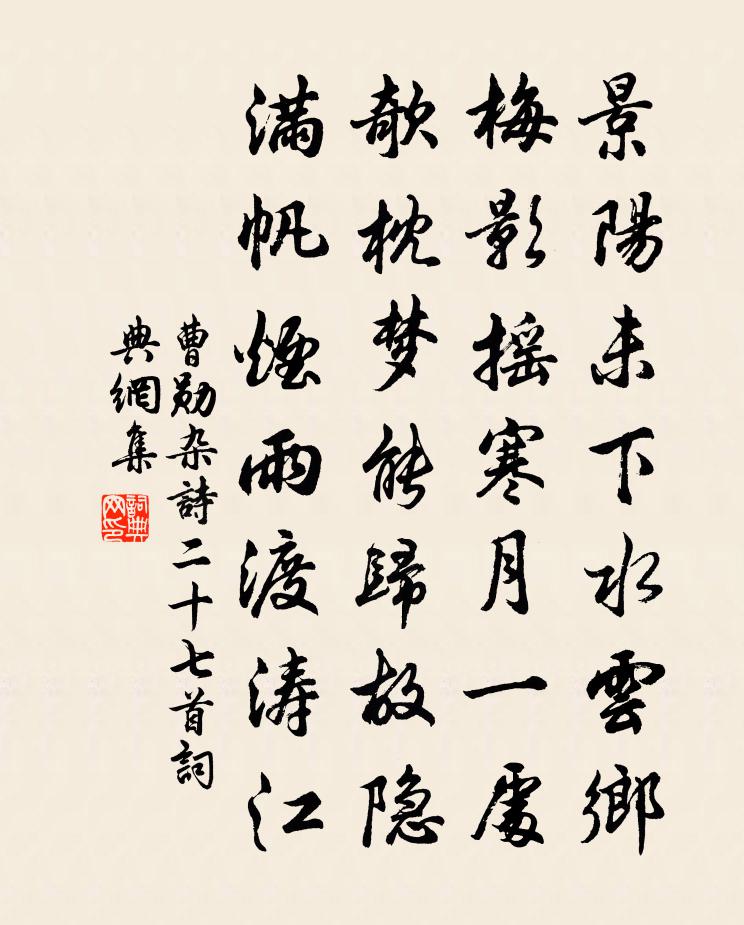 景陽未下水雲鄉
梅影摇寒月一處
欹枕梦能歸故隐
满帆煙雨渡涛江
曹勛杂詩二十七首詞
典網集
詞典网印